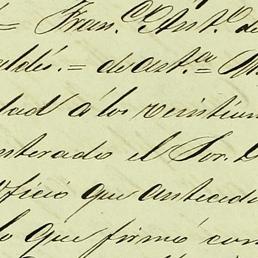 = Fran.co Ant.o de
aldés. = de ast.a = 
dad á los veintiun
nterado el Sor. D
ficio que anteced
lo que firmó con